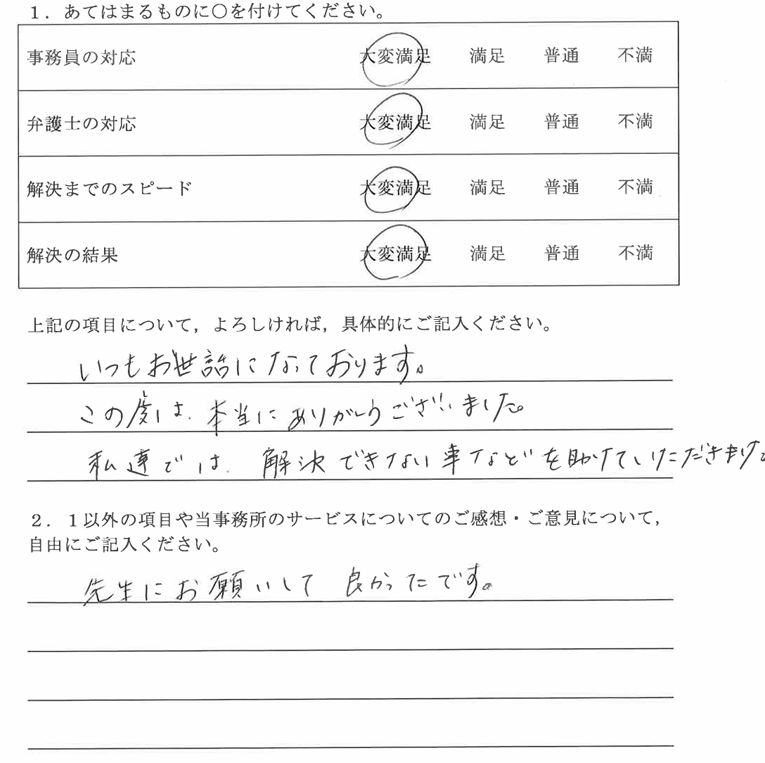 １．あてはまるものに○を付けてください。
事務員の対応 大変満足 満足 普通 不満
弁護士の対応 大変満足 満足 普通 不満
解決までのスピード 大変満足 満足 普通 不満
解決の結果 大変満足 満足 普通 不満
上記の項目について，よろしければ，具体的にご記入ください。
いつもお世話になっております。
この度は、本当にありがとうございました。
私達では、解決できない事などを助けていただきました。
２．１以外の項目や当事務所のサービスについてのご感想・ご意見について，
自由にご記入ください。
先生にお願いして 良かったです。